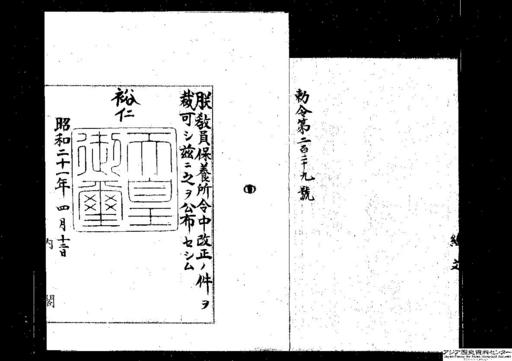 勅令第二百二十九號
朕教員保養所令中改正ノ件ヲ
裁可シ玆ニ之ヲ公布セシム
裕仁
天皇
御璽
昭和二十一年四月十二日
内閣
アジア歴史資料センター